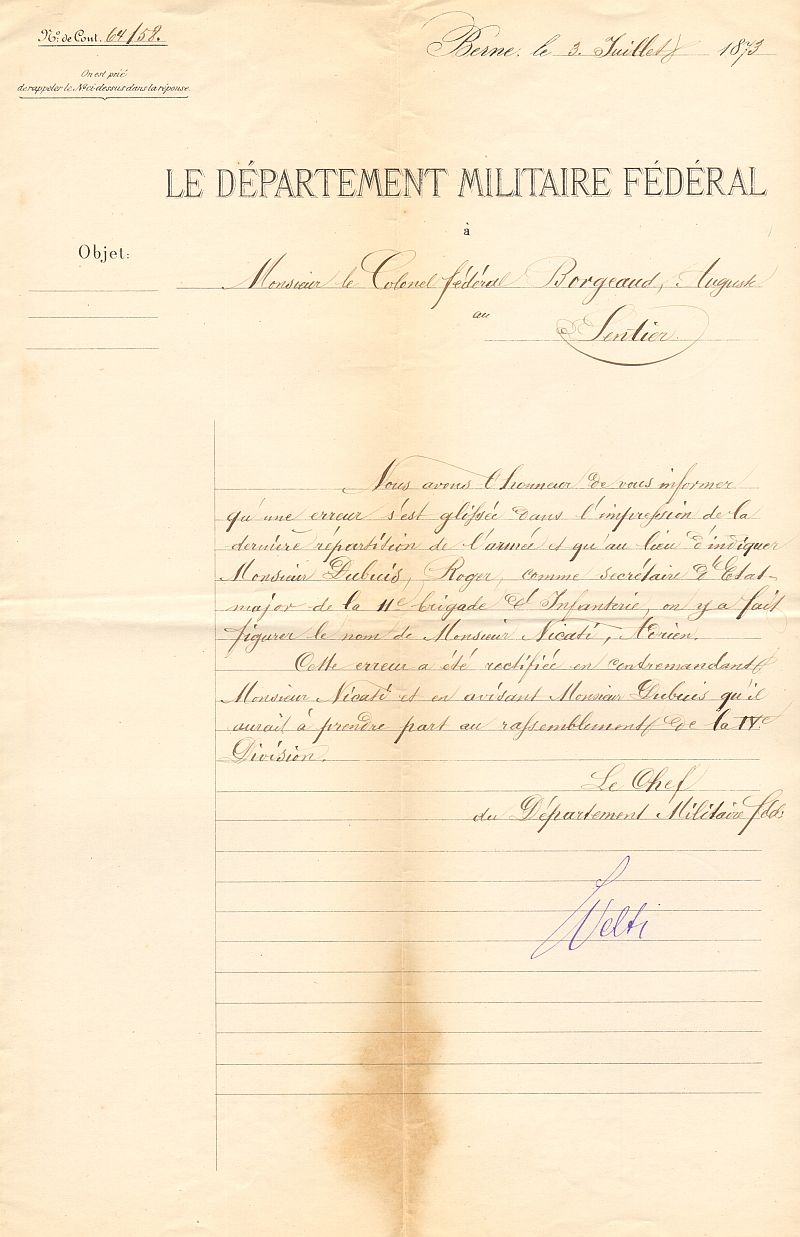 No. de Cont. 64/58.
On est prié
de rappeler le No. ci-dessus dans la réponse.
Berne, le 3. Juillet 1873
LE DÉPARTEMENT MILITAIRE FÉDÉRAL
à
Objet:
Monsieur le Colonel fédéral Borgeaud, Auguste
au
Sentier.
Nous avons l'honneur de vous informer
qu'une erreur s'est glissée dans l'impression de la
dernière répartition de l'armée et qu'au lieu d'indiquer
Monsieur Dubuis, Roger, comme secrétaire d'Etat-
major de la 11e brigade d'Infanterie, on y a fait
figurer le nom de Monsieur Nicati, Adrien.
Cette erreur a été rectifiée en contremandant
Monsieur Nicati et en avisant Monsieur Dubuis qu'il
aurait à prendre part au rassemblement de la IVe
Division.
Le Chef
du Département Militaire féd:
Welti